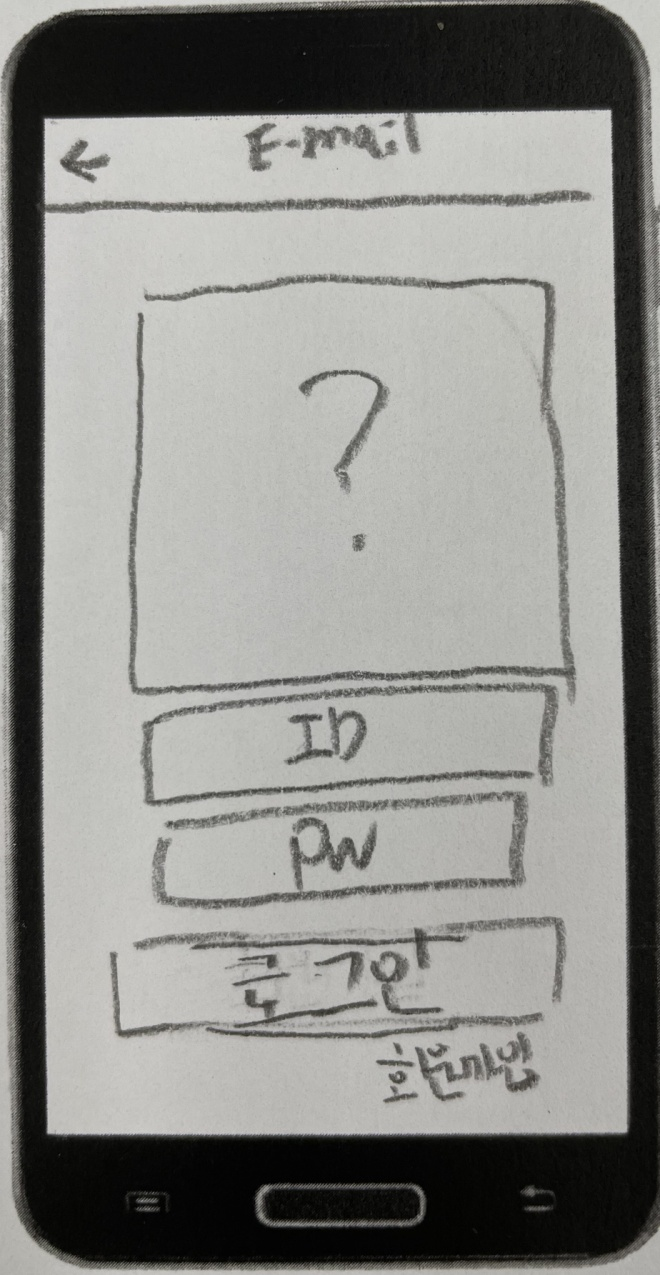 ← E-mail
?
ID
PW
로그인
회원가입